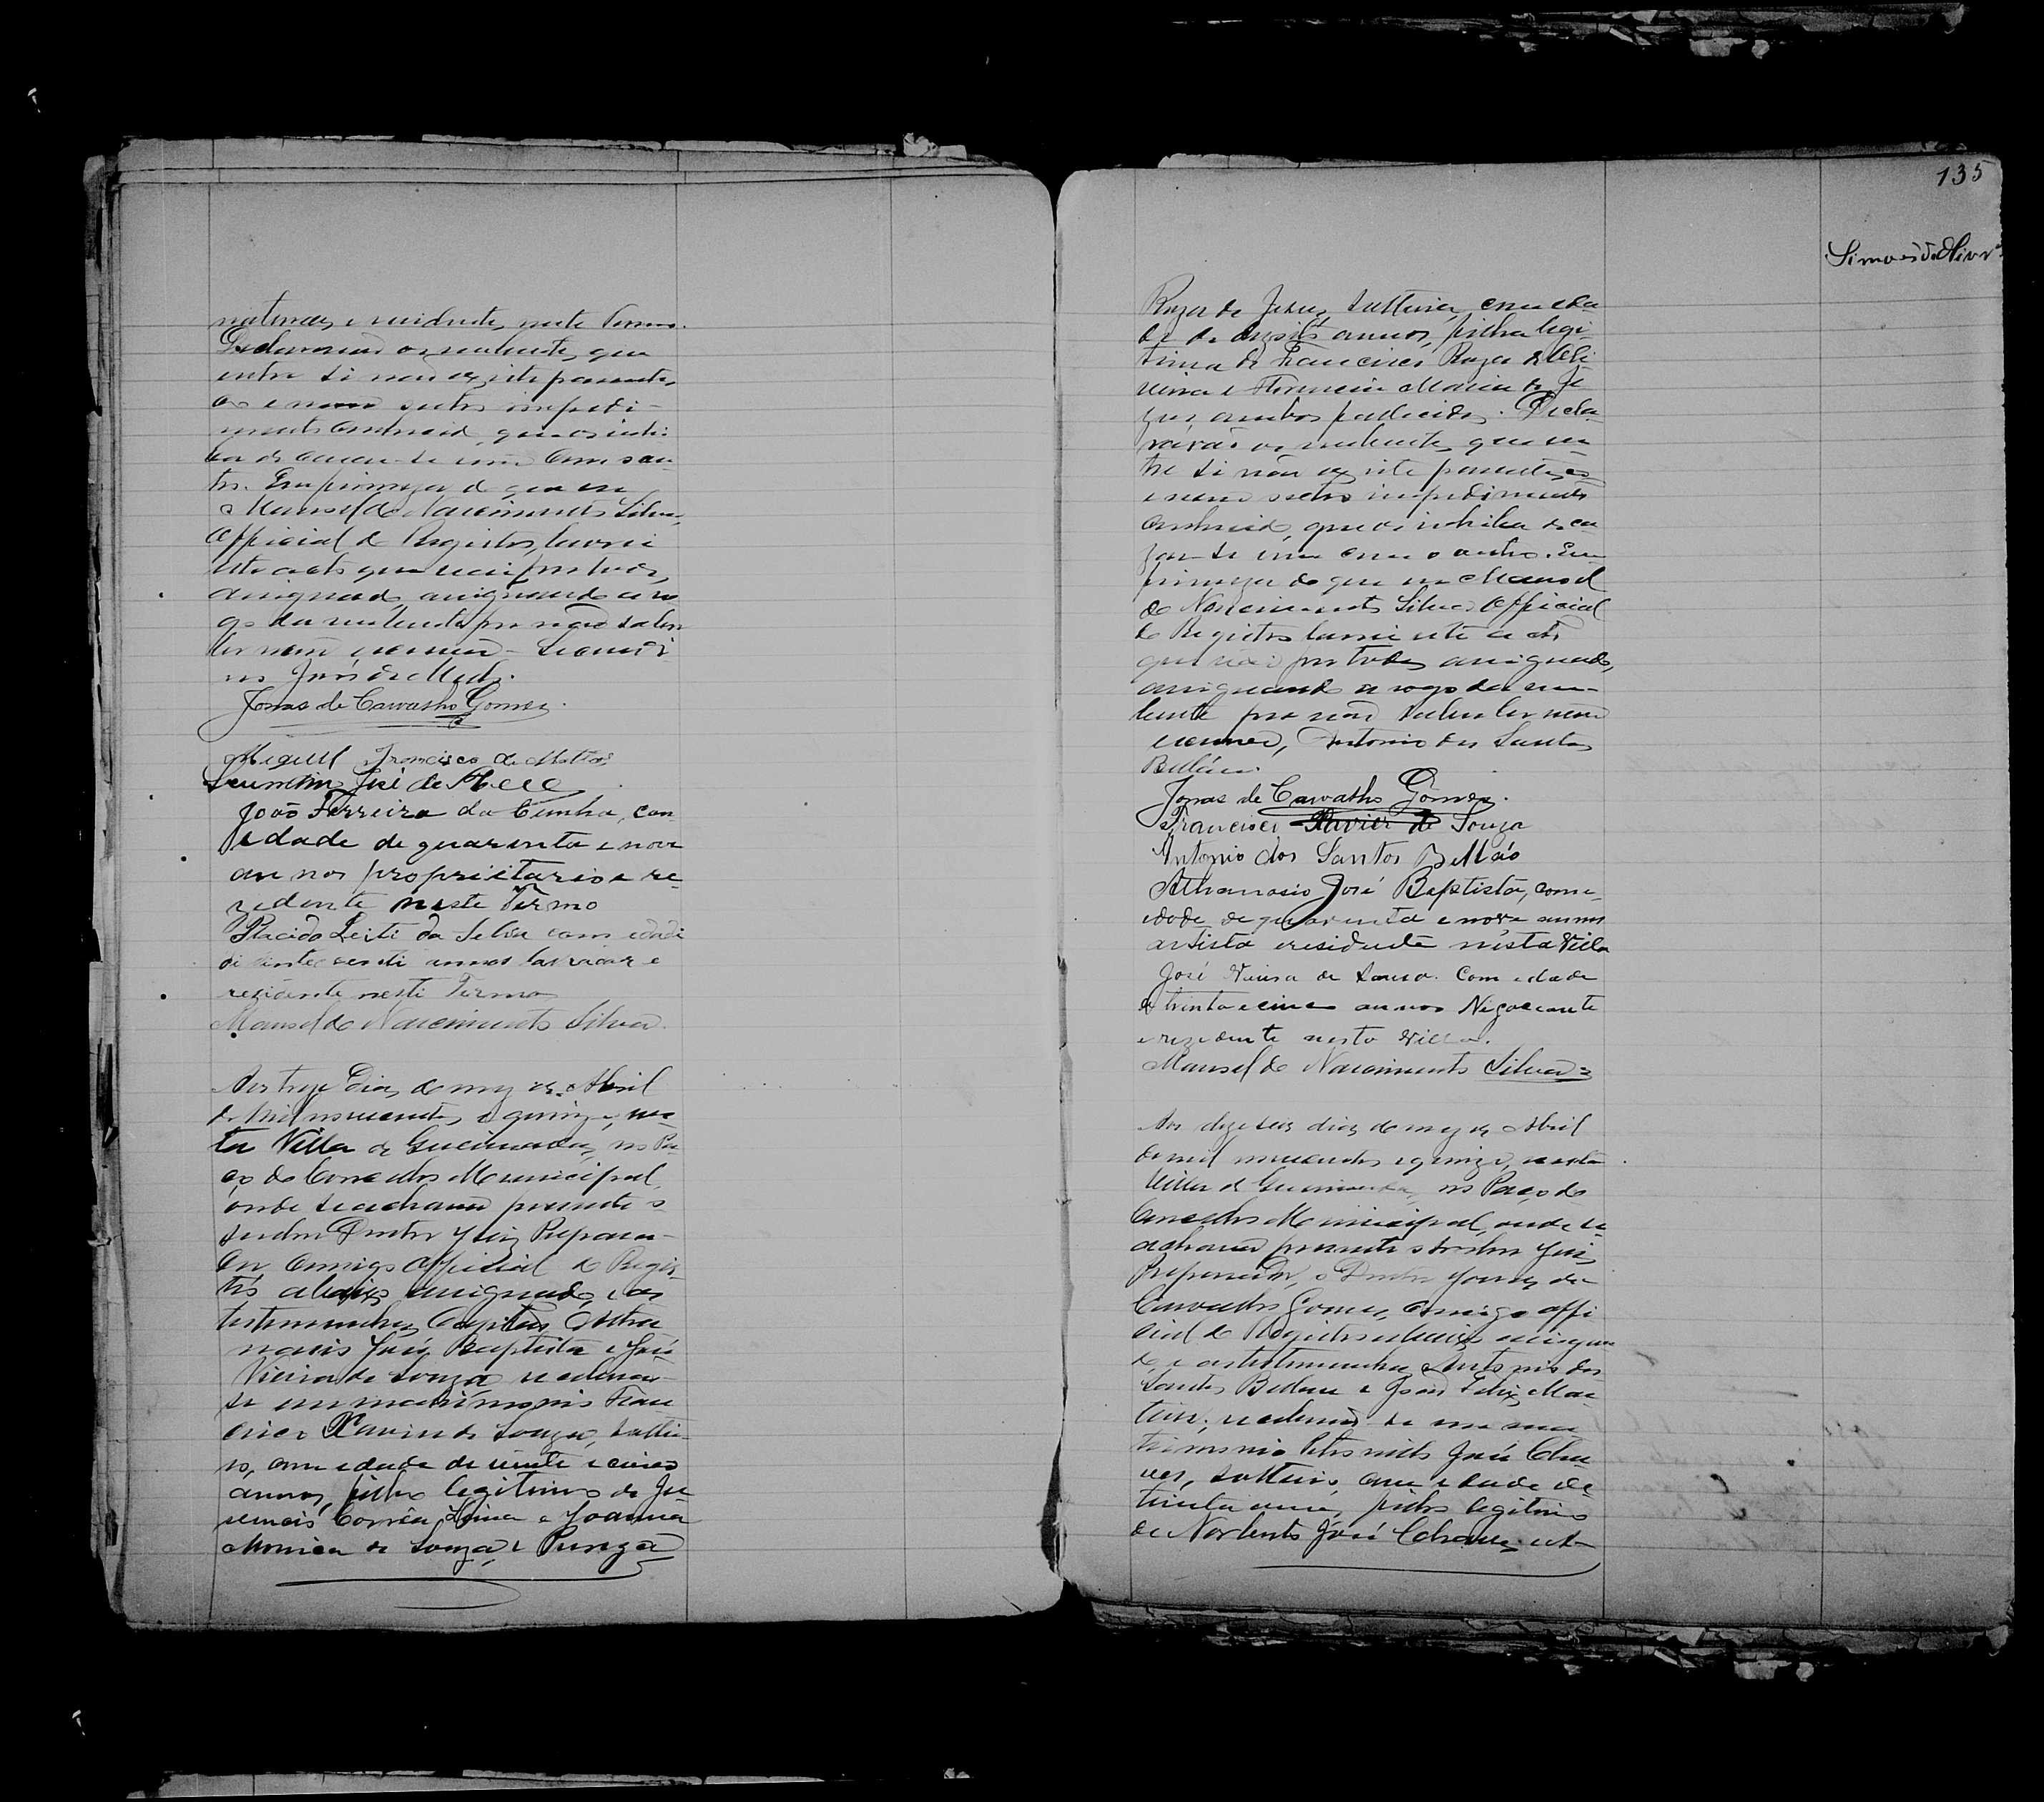 naturaes, e residentes neste Termo.
Declararam os nubentes, que
entre si não existe parentes-
co e nem outro impedi-
mento conhecido, que os inhi-
ba de casar-se um com o ou-
tro. Em firmeza do que eu
Manoel do Nascimento Silva,
Official do Registro, lavrei
este acto que vai por todos,
assignado, assignando a ro-
go da nubente por não saber
ler nem escrever
José de Mello.
Jonas de Carvalho Gomes.
Miguel Francisco de Mattos
José de Mello
João Ferreira da Cunha, com
idade de quarenta e nove
annos proprietario e re-
zidente neste Termo
Placido Leite da Silva com edade
de vinte e seti annos lavrador e
rezidente neste Termo
Manoel do Nascimento Silva.
Aos treze dias do mez de Abril
de mil novecentos e quinze, nes-
ta Villa de no Pa-
ço do Conselho Municipal,
onde se achava presente o
senhor Doutor Juiz Prepara-
dor comigo official do Regis-
tro abaixo assignado, e as
testemunhas Capitão Atha-
nasio José Baptista e José
Vieira de Souza, receberam-
se em matrimonio Fran-
cisco Xavier de Souza, soltei-
ro, com edade de vinte e cinco
annos, filho legitimo de Je-
remias Corrêa Lima e Joanna
Monica de Souza, e
135
Simões d'Olivrª
Roza de Jesus, solteira, com eda-
de de dezseis annos, filha legi-
tima de Francisco Roza de Oli-
veira e Florencia Maria de Je-
zus, ambos fallecidos. Decla-
rarão os nubentes, que en-
tre si não existe parentesco
e nem outro impedimento
conhecido, que os inhiba de ca-
zar-se um com o outro. Em
firmeza do que eu Manoel
do Nascimento Silva, Official
do Registro lavrei este acto
que vai por todos assignado,
assignando a rogo da nu-
bente por não saber ler nem
escrever, Antonio dos Santos
Bellão.
Jonas de Carvalho Gomes.
Francisco Xavier de Souza
Antonio dos Santos Bellão
Athanasio José Baptista, com e-
dade de quarenta e nove annos
artista e residente nésta Villa
José Vieira de Souza. Com edade
de trinta e cinco annos Negociante
e rezedente nesta Villa.
Manoel do Nascimento Silva
Aos dezeseis dias do mez de Abril
de mil novecentos e quinze, nesta
Villa de no Paço do
Conselho Municipal, onde se
achava presente o senhor Juiz
Preparador, o Doutor Jonas de
Carvalho Gomes, comigo offi-
cial do Registro abaixo assigna-
do, e as testemunhas Antonio dos
Santos Bellão e João Felix Mar-
tins, receberam-se em ma-
trimonio José Cha-
ves, solteiro, com edade de
trinta annos, filho legitimo
de Norberto José Chaves e